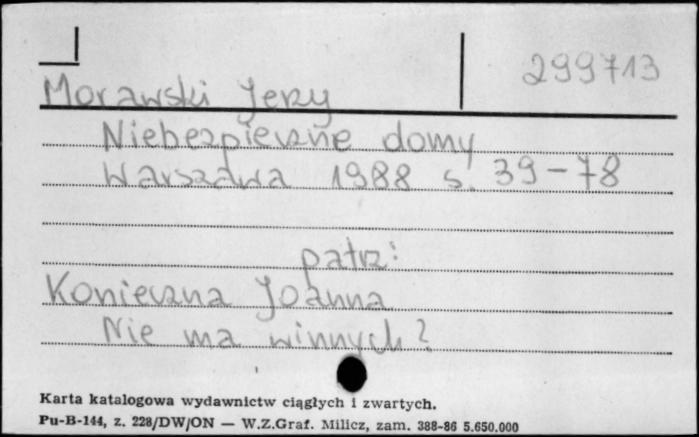 299713
Morawski Jerzy
Niebezpieczne domy
Warszawa 1988 s. 39-78
patrz:
Konieczna Joanna
Nie ma winnych?
Karta katalogowa wydawnictw ciągłych i zwartych.
Pu-B-144, z. 228/DW/ON — W.Z.Graf. Milicz, zam. 388-86 5.650.000